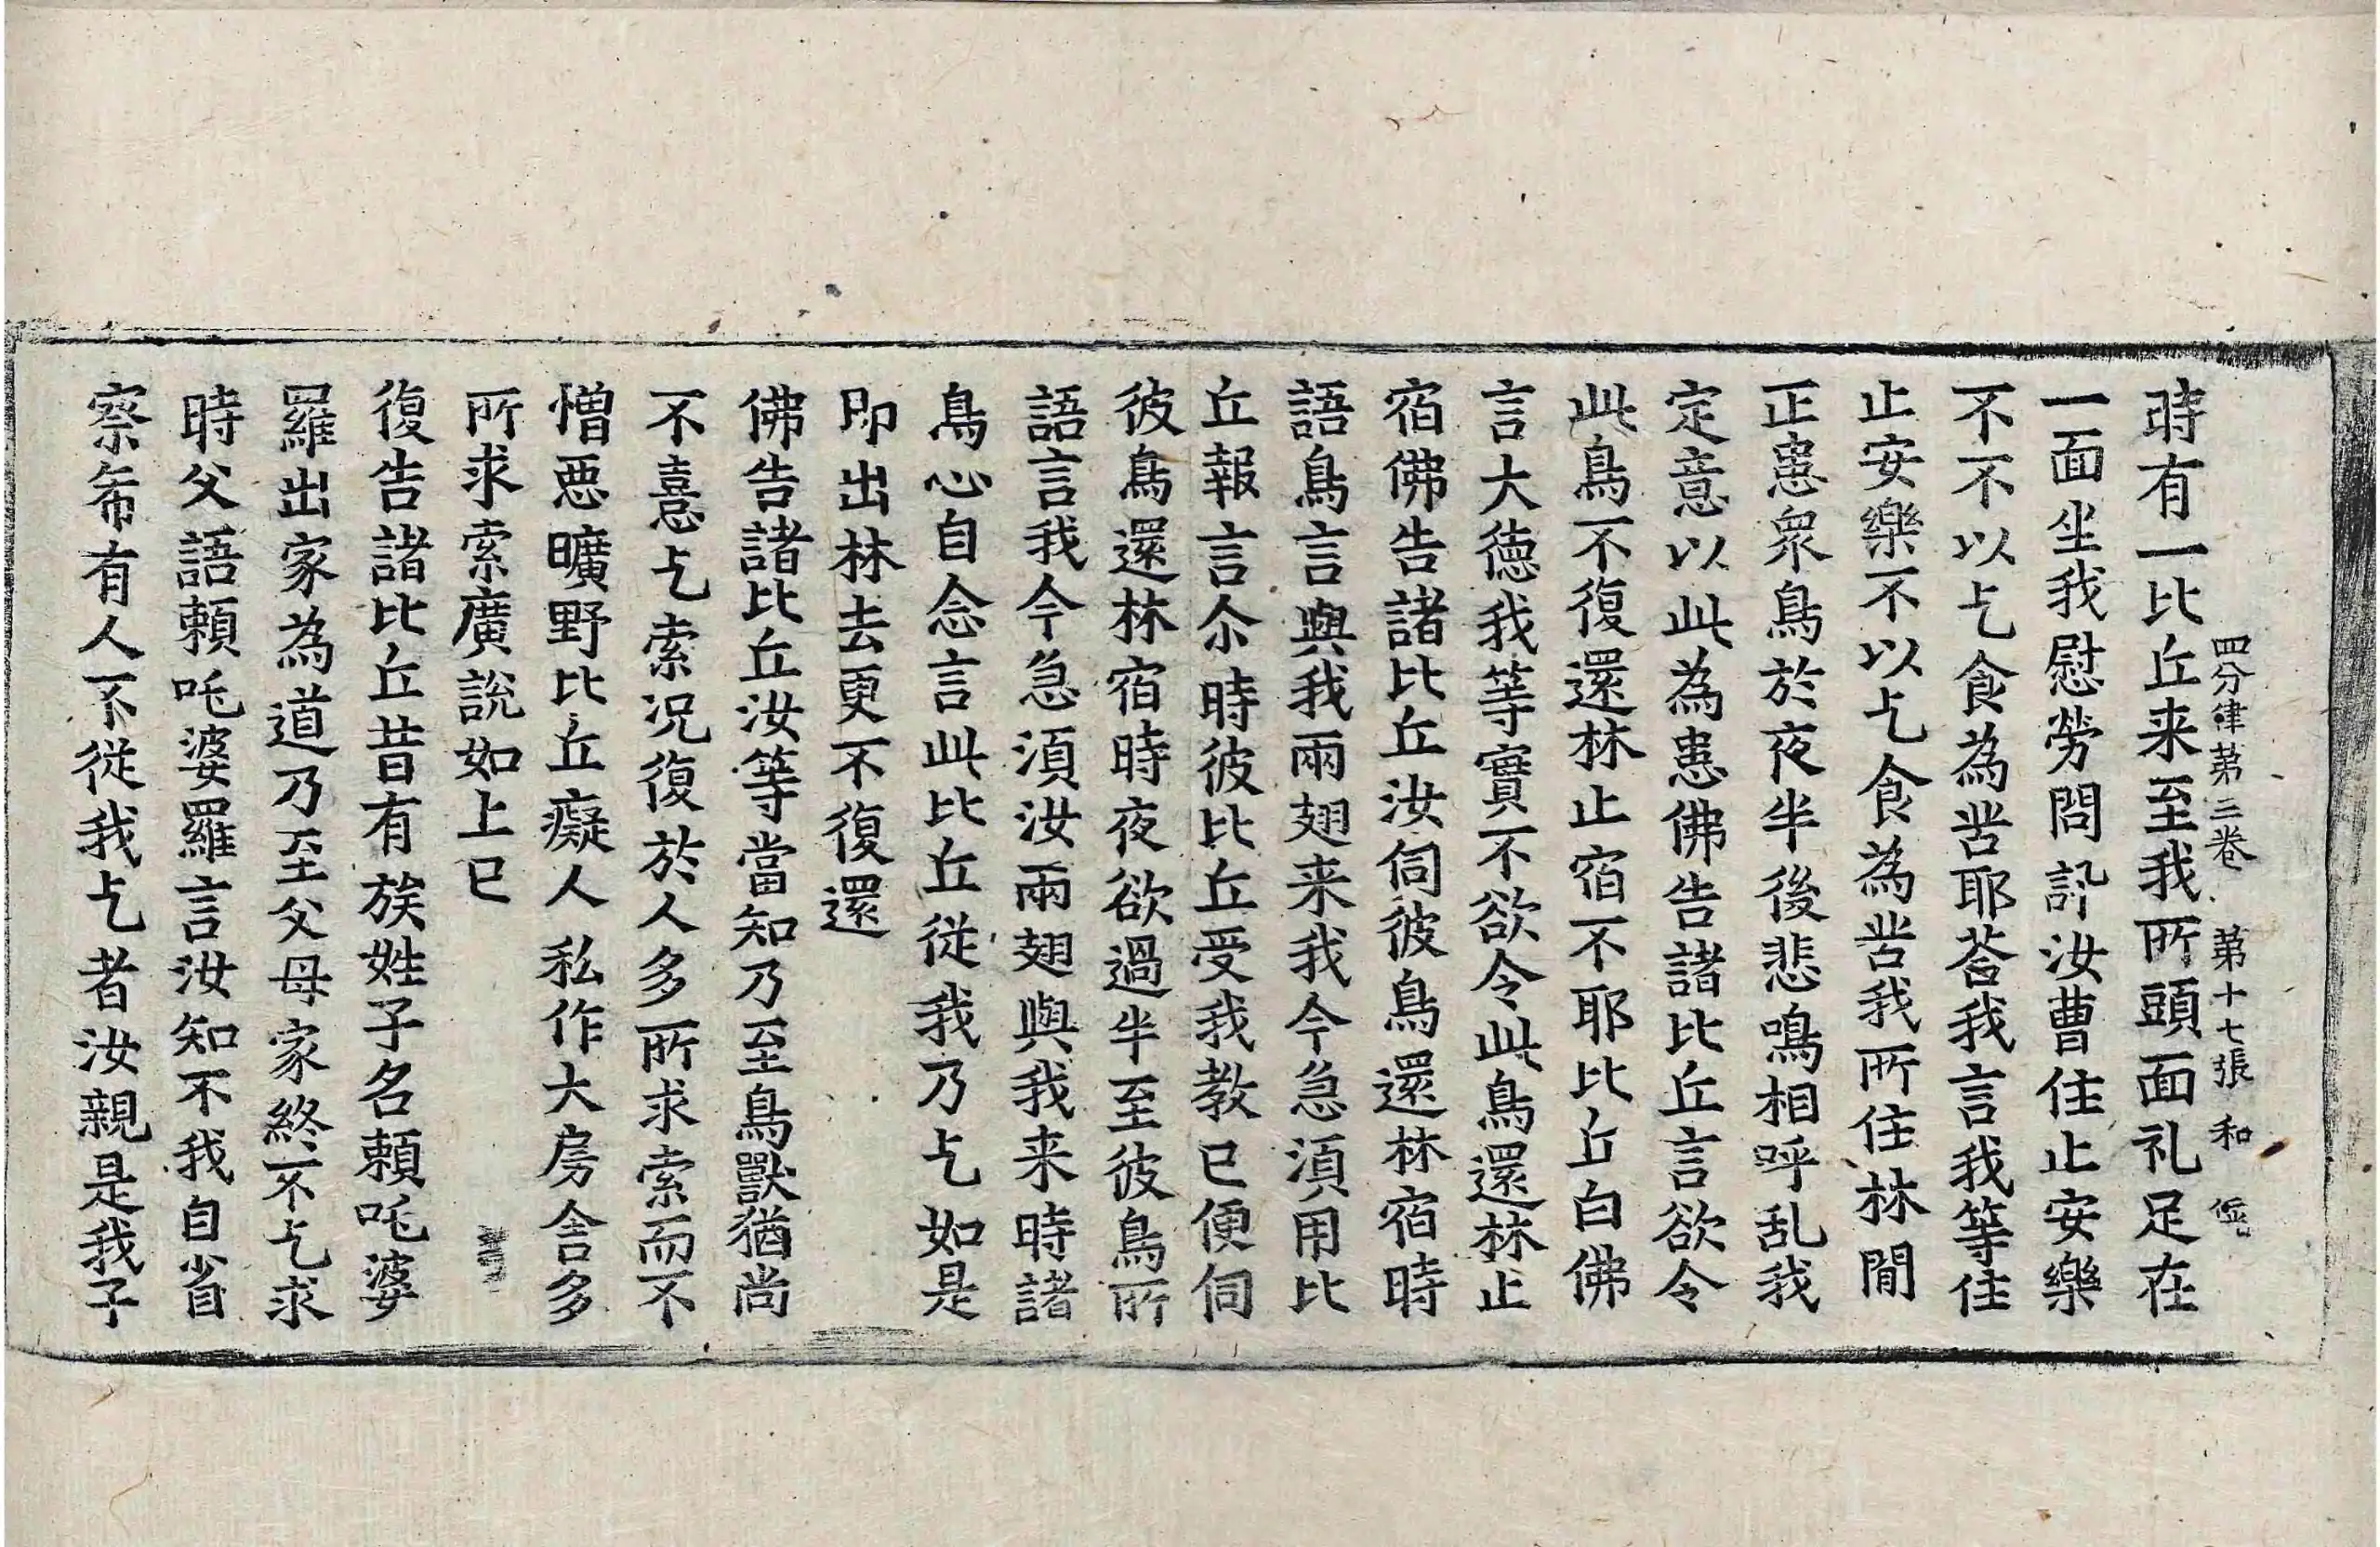 四分律第三卷　第十七張　和
時有一比丘来至我所頭面礼足在
一面坐我慰勞問訊汝曹住止安樂
不不以乞食為苦耶荅我言我等住
止安樂不以乞食為苦我所住林間
正患衆鳥於夜半後悲鳴相呼乱我
定意以此為患佛告諸比丘言欲令
此鳥不復還林止宿不耶比丘白佛
言大德我等實不欲令此鳥還林止
宿佛告諸比丘汝伺彼鳥還林宿時
語鳥言與我兩翅来我今急湏用比
丘報言尒時彼比丘受我教已便伺
彼鳥還林宿時夜欲過半至彼鳥所
語言我今急湏汝兩翅與我来時諸
鳥心自念言此比丘従我乃乞如是
即出林去更不復還
佛告諸比丘汝等當知乃至鳥獸猶尚
不憙乞索况復於人多所求索而不
憎惡曠野比丘癡人私作大房舍多
所求索廣說如上已
復告諸比丘昔有族姓子名頼吒婆
羅出家為道乃至父母家終不乞求
時父語頼吒婆羅言汝知不我自省
察希有人不従我乞者汝親是我子